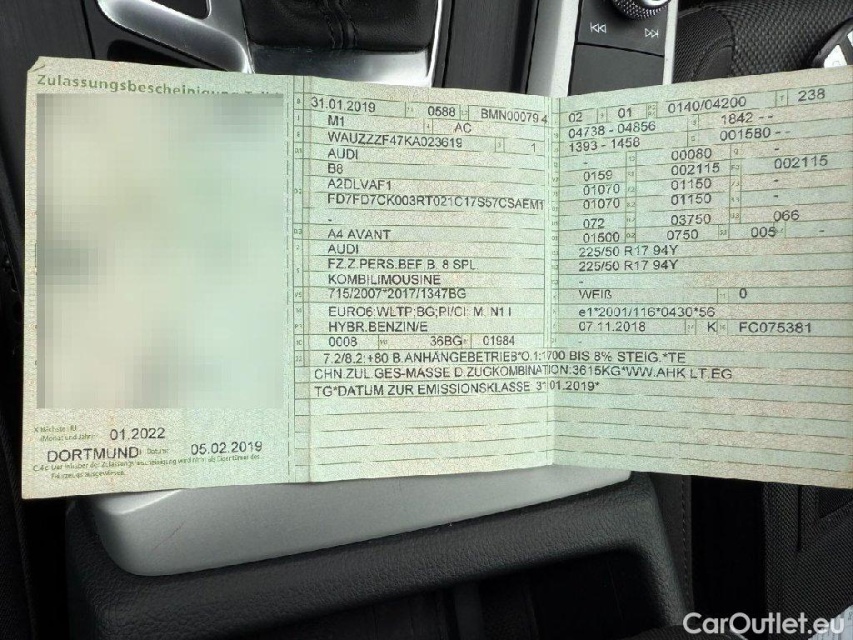 Zulassungsbescheinigung
31.01.2019 0588 BMN00079 4
M1 AC
WAUZZZF47KA023619 1
AUDI
B8
A2DLVAF1
FD7FD7CK003RT021C17S57CSAEM1
-
A4 AVANT
AUDI
FZ.Z.PERS.BEF.B. 8 SPL.
KOMBILIMOUSINE
715/2007*2017/1347BG
EURO6;WLTP;BG;PI/CI; M, N1 I
HYBR.BENZIN/E
0008 36BG 01984
7.2/8.2:+80 B.ANHÄNGEBETRIEB*O.1:1700 BIS 8% STEIG.*TE
CHN.ZUL GES-MASSE D.ZUGKOMBINATION:3615KG*WW.AHK LT.EG
TG*DATUM ZUR EMISSIONSKLASSE 31.01.2019*
02 01 0140/04200 238
04738 - 04856 1842 - -
1393 - 1458 001580 - -
- 00080 -
0159 002115 002115
01070 01150 -
01070 01150 -
072 03750 066
01500 0750 005 -
225/50 R17 94Y
225/50 R17 94Y
-
WEIß 0
e1*2001/116*0430*56
07.11.2018 K FC075381
-
01.2022
DORTMUND Datum: 05.02.2019
CarOutlet.eu